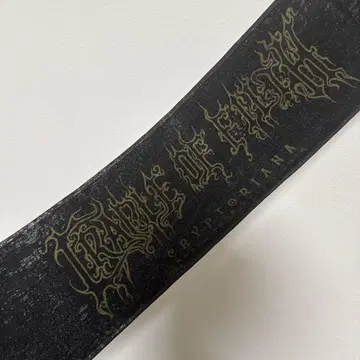 CRADLE OF FILTH
CRYPTORIANA